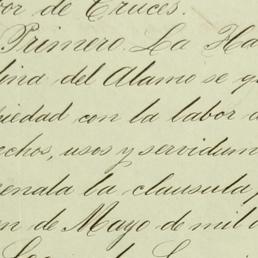 or de Cruces.
Primero. La Ha
ina del Alamo se q
piedad con la labor d
echos, usos y servidum
enala la clausula
n de Mayo de mil